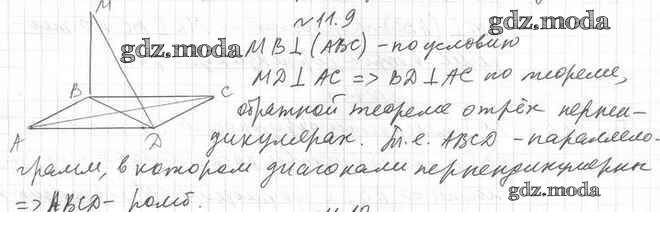 №11.9
M
gdz.moda
gdz.moda
MB⊥(ABC) - по условию
MD⊥AC => BD⊥AC по теореме,
B
C
обратной теореме о трёх перпен-
A
D
дикулярах. Т.е. ABCD - параллело-
грамм, в котором диагонали перпендикулярны
=> ABCD - ромб.
gdz.moda